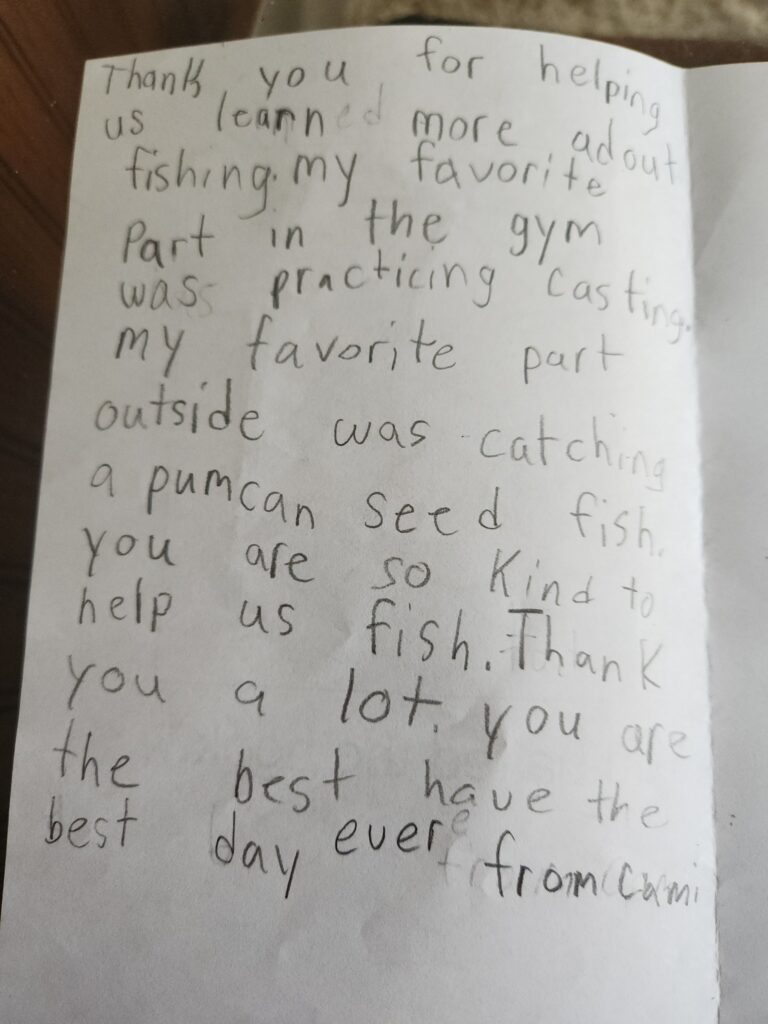 Thank you for helping
us learn more adout
fishing. my favorite
Part in the gym
was practicing casting.
my favorite part
outside was catching
a pumcan seed fish.
you are so kind to
help us fish. Thank
you a lot. you are
the best have the
best day ever from Cami